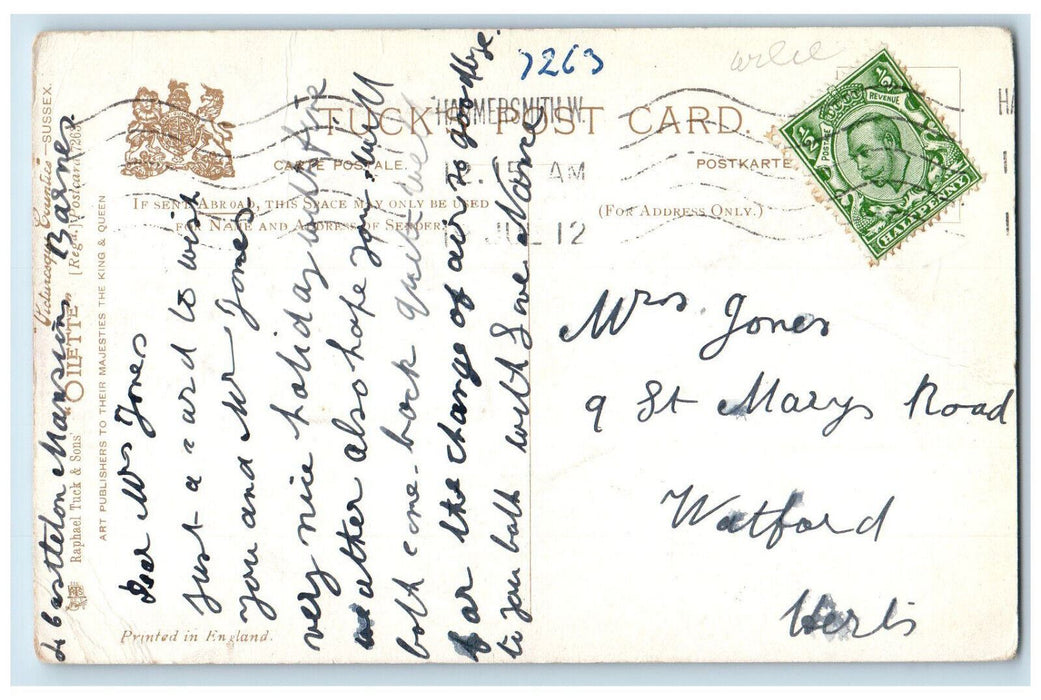 7263
TUCK'S POST CARD.
CARTE POSTALE.
POSTKARTE.
IF SENT ABROAD, THIS SPACE MAY ONLY BE USED
FOR NAME AND ADDRESS OF SENDER.
(FOR ADDRESS ONLY.)
HAMMERSMITH.W.
12.15 AM
JUL 12
POSTAGE
REVENUE
½
½
HALFPENNY
"Picturesque Counties" — SUSSEX.
Raphael Tuck & Sons' "OILETTE" [Regd.] Postcard 7263
ART PUBLISHERS TO THEIR MAJESTIES THE KING & QUEEN
Printed in England.
Castleton Mansions Barnes
Dear Mrs Jones
Just a card to wish
you and Mr Jones
very nice holiday with fine
weather also hope you will
both come back quite well
for the change of air so goodbye.
to you both with Love
Mrs Jones
9 St Marys Road
Watford
Herts